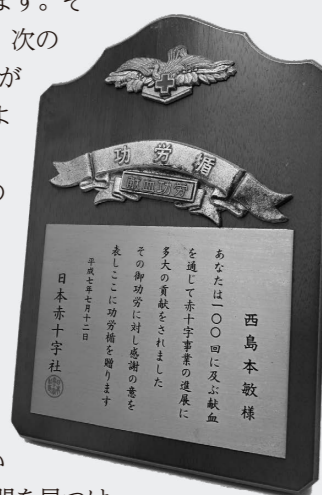 ます。そ
次の
が
の
功労楯
献血功労
西島本敏様
あなたは一〇〇回に及ぶ献血
を通じて赤十字事業の進展に
多大の貢献をされました
その御功労に対し感謝の意を
表しここに功労楯を贈ります
平成七年七月十二日
日本赤十字社
い